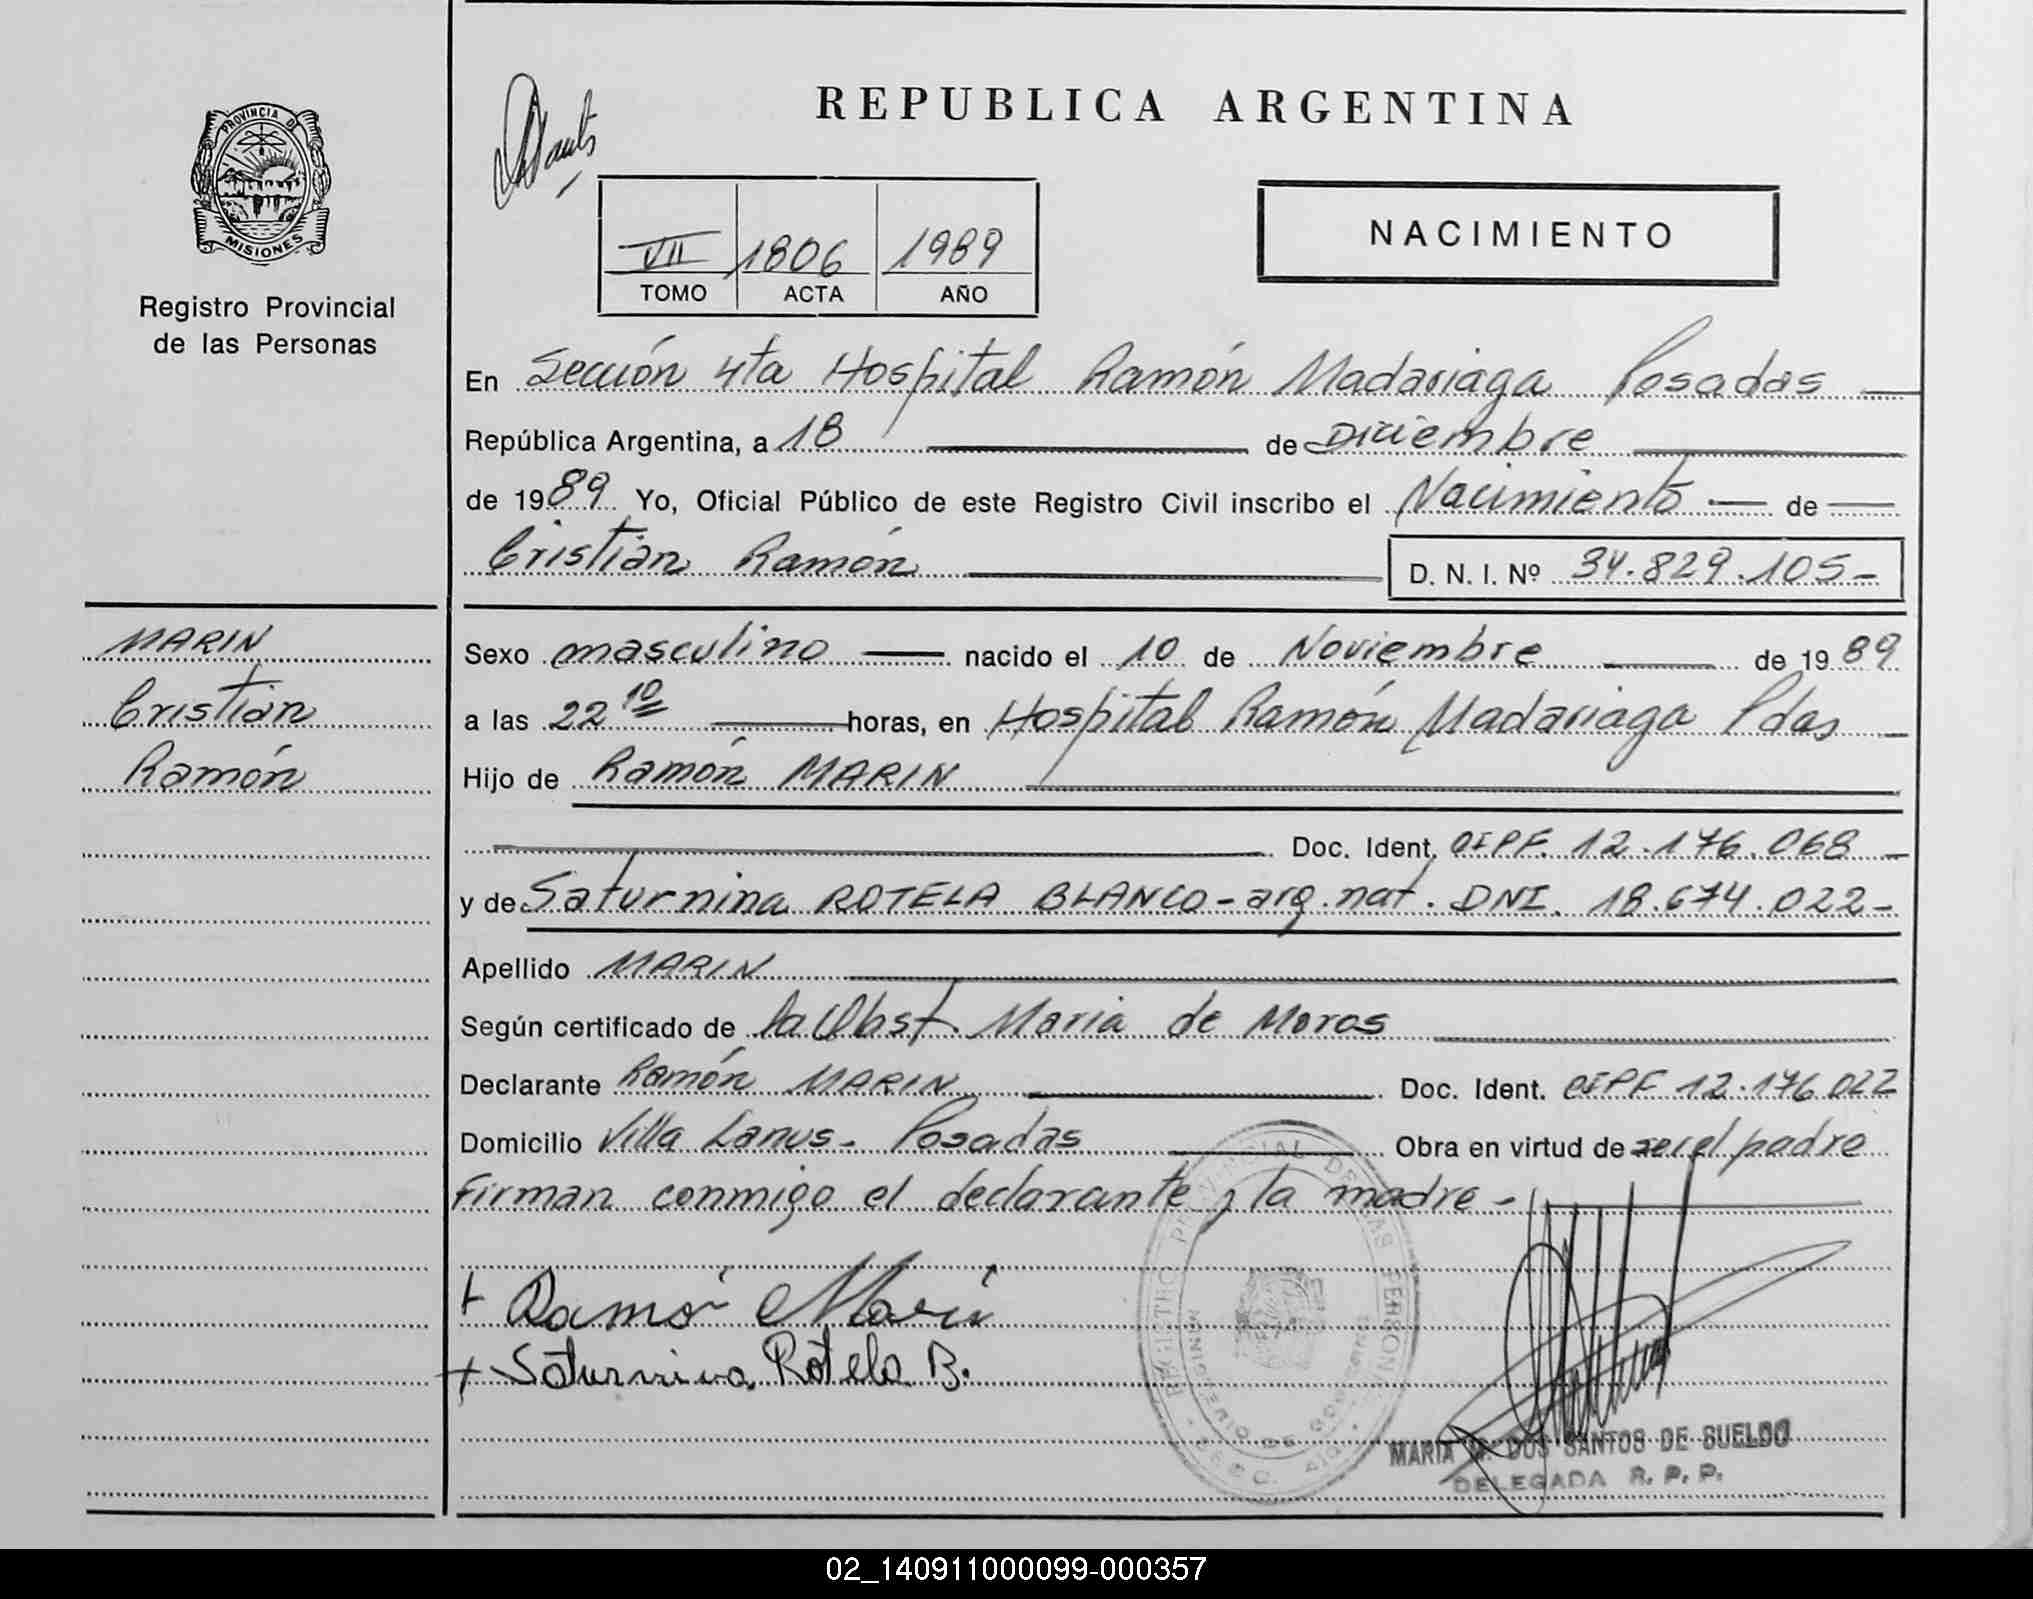 PROVINCIA D
MISIONES
Registro Provincial
de las Personas
MARIN
Cristian
Ramón
REPUBLICA ARGENTINA
VII 1806 1989
TOMO ACTA AÑO
NACIMIENTO
En Sección 4ta Hospital Ramón Madariaga Posadas
República Argentina, a 18 de Diciembre
de 1989 Yo, Oficial Público de este Registro Civil inscribo el Nacimiento de
Cristian Ramón
D. N. I. Nº 34.829.105-
Sexo masculino nacido el 10 de Noviembre de 1989
a las 22 10 horas, en Hospital Ramón Madariaga Pdas
Hijo de Ramón MARIN
Doc. Ident. CIPF. 12.176.068
y de Saturnina ROTELA BLANCO - arg. nat. DNI. 18.674.022-
Apellido MARIN
Según certificado de la Obst. Maria de Moros
Declarante Ramón MARIN Doc. Ident. CIPF 12.176.022
Domicilio Villa Lanus - Posadas Obra en virtud de ser el padre
Firman conmigo el declarante y la madre -
+ Ramón Marin
+ Saturnina Rotela B.
MARIA DOS SANTOS DE SUELDO
DELEGADA R. P. P.
02_140911000099-000357